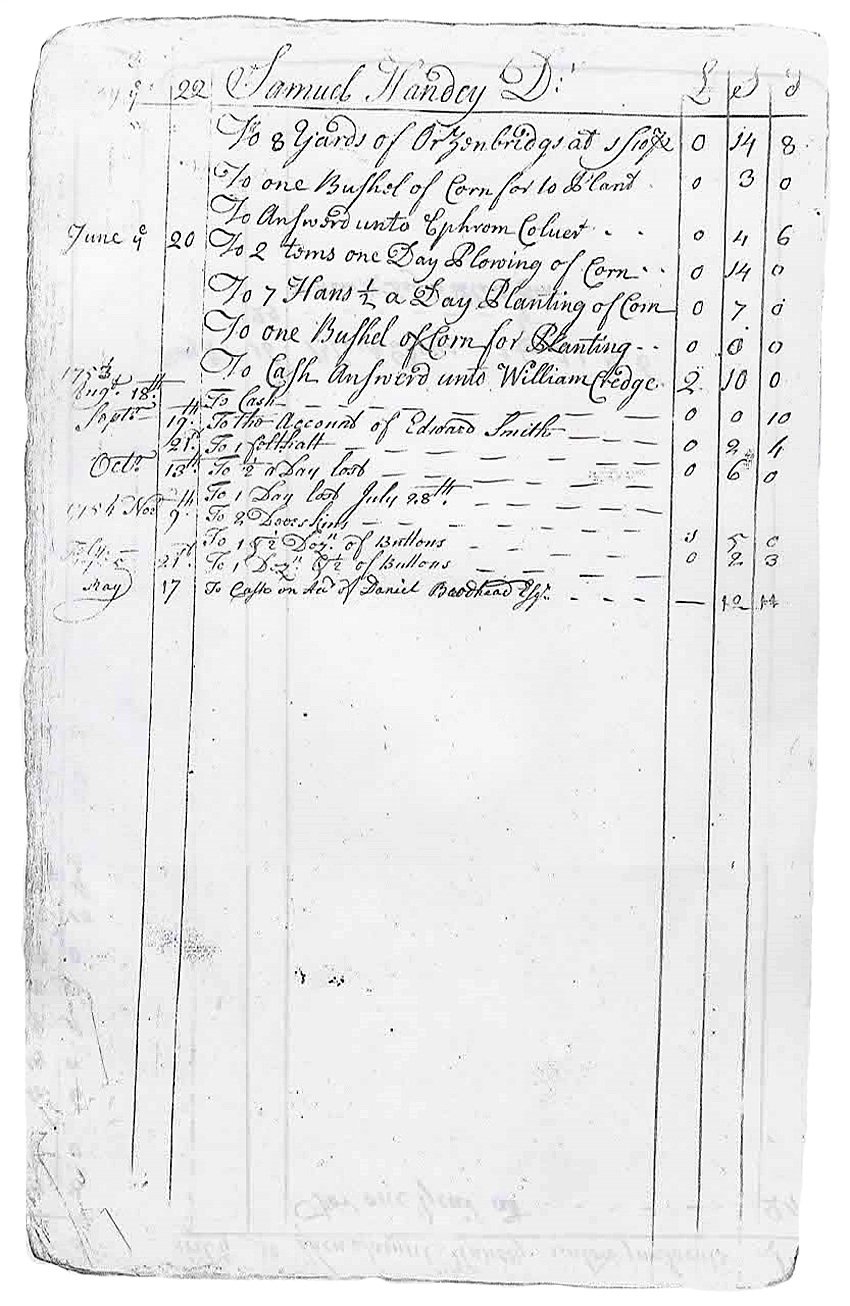 22 Samuel Handey Dr £ S D
To 8 Yards of Orzenbridgs at 1/10 0 14 8
To one Bushel of Corn for to Pland 0 3 0
To Answerd unto Ephrom Coluer 0 4 6
June ye 20 To 2 tems one Day Plowing of Corn 0 14 0
To 7 Hans ½ a Day Planting of Corn 0 7 0
To one Bushel of Corn for Planting 0 0
To Cash Answerd unto William Credge 2 10 0
1753
Augt 18th To Cash
Septr 19th To the Account of Edward Smith 0 0 10
21st To 1 felthatt 0 2 4
Octr 13th To ½ a Day lost 0 6 0
To 1 Day lost July 28th
1754 Novr 9th To 2 Doeeskins
To 1 ½ Dozn of Buttons 5 0
21st To 1 Dozn ½ of Buttons 0 2 3
May 17 To Cash on Acct of Daniel Broodhead Esqr — 12
For one Year at